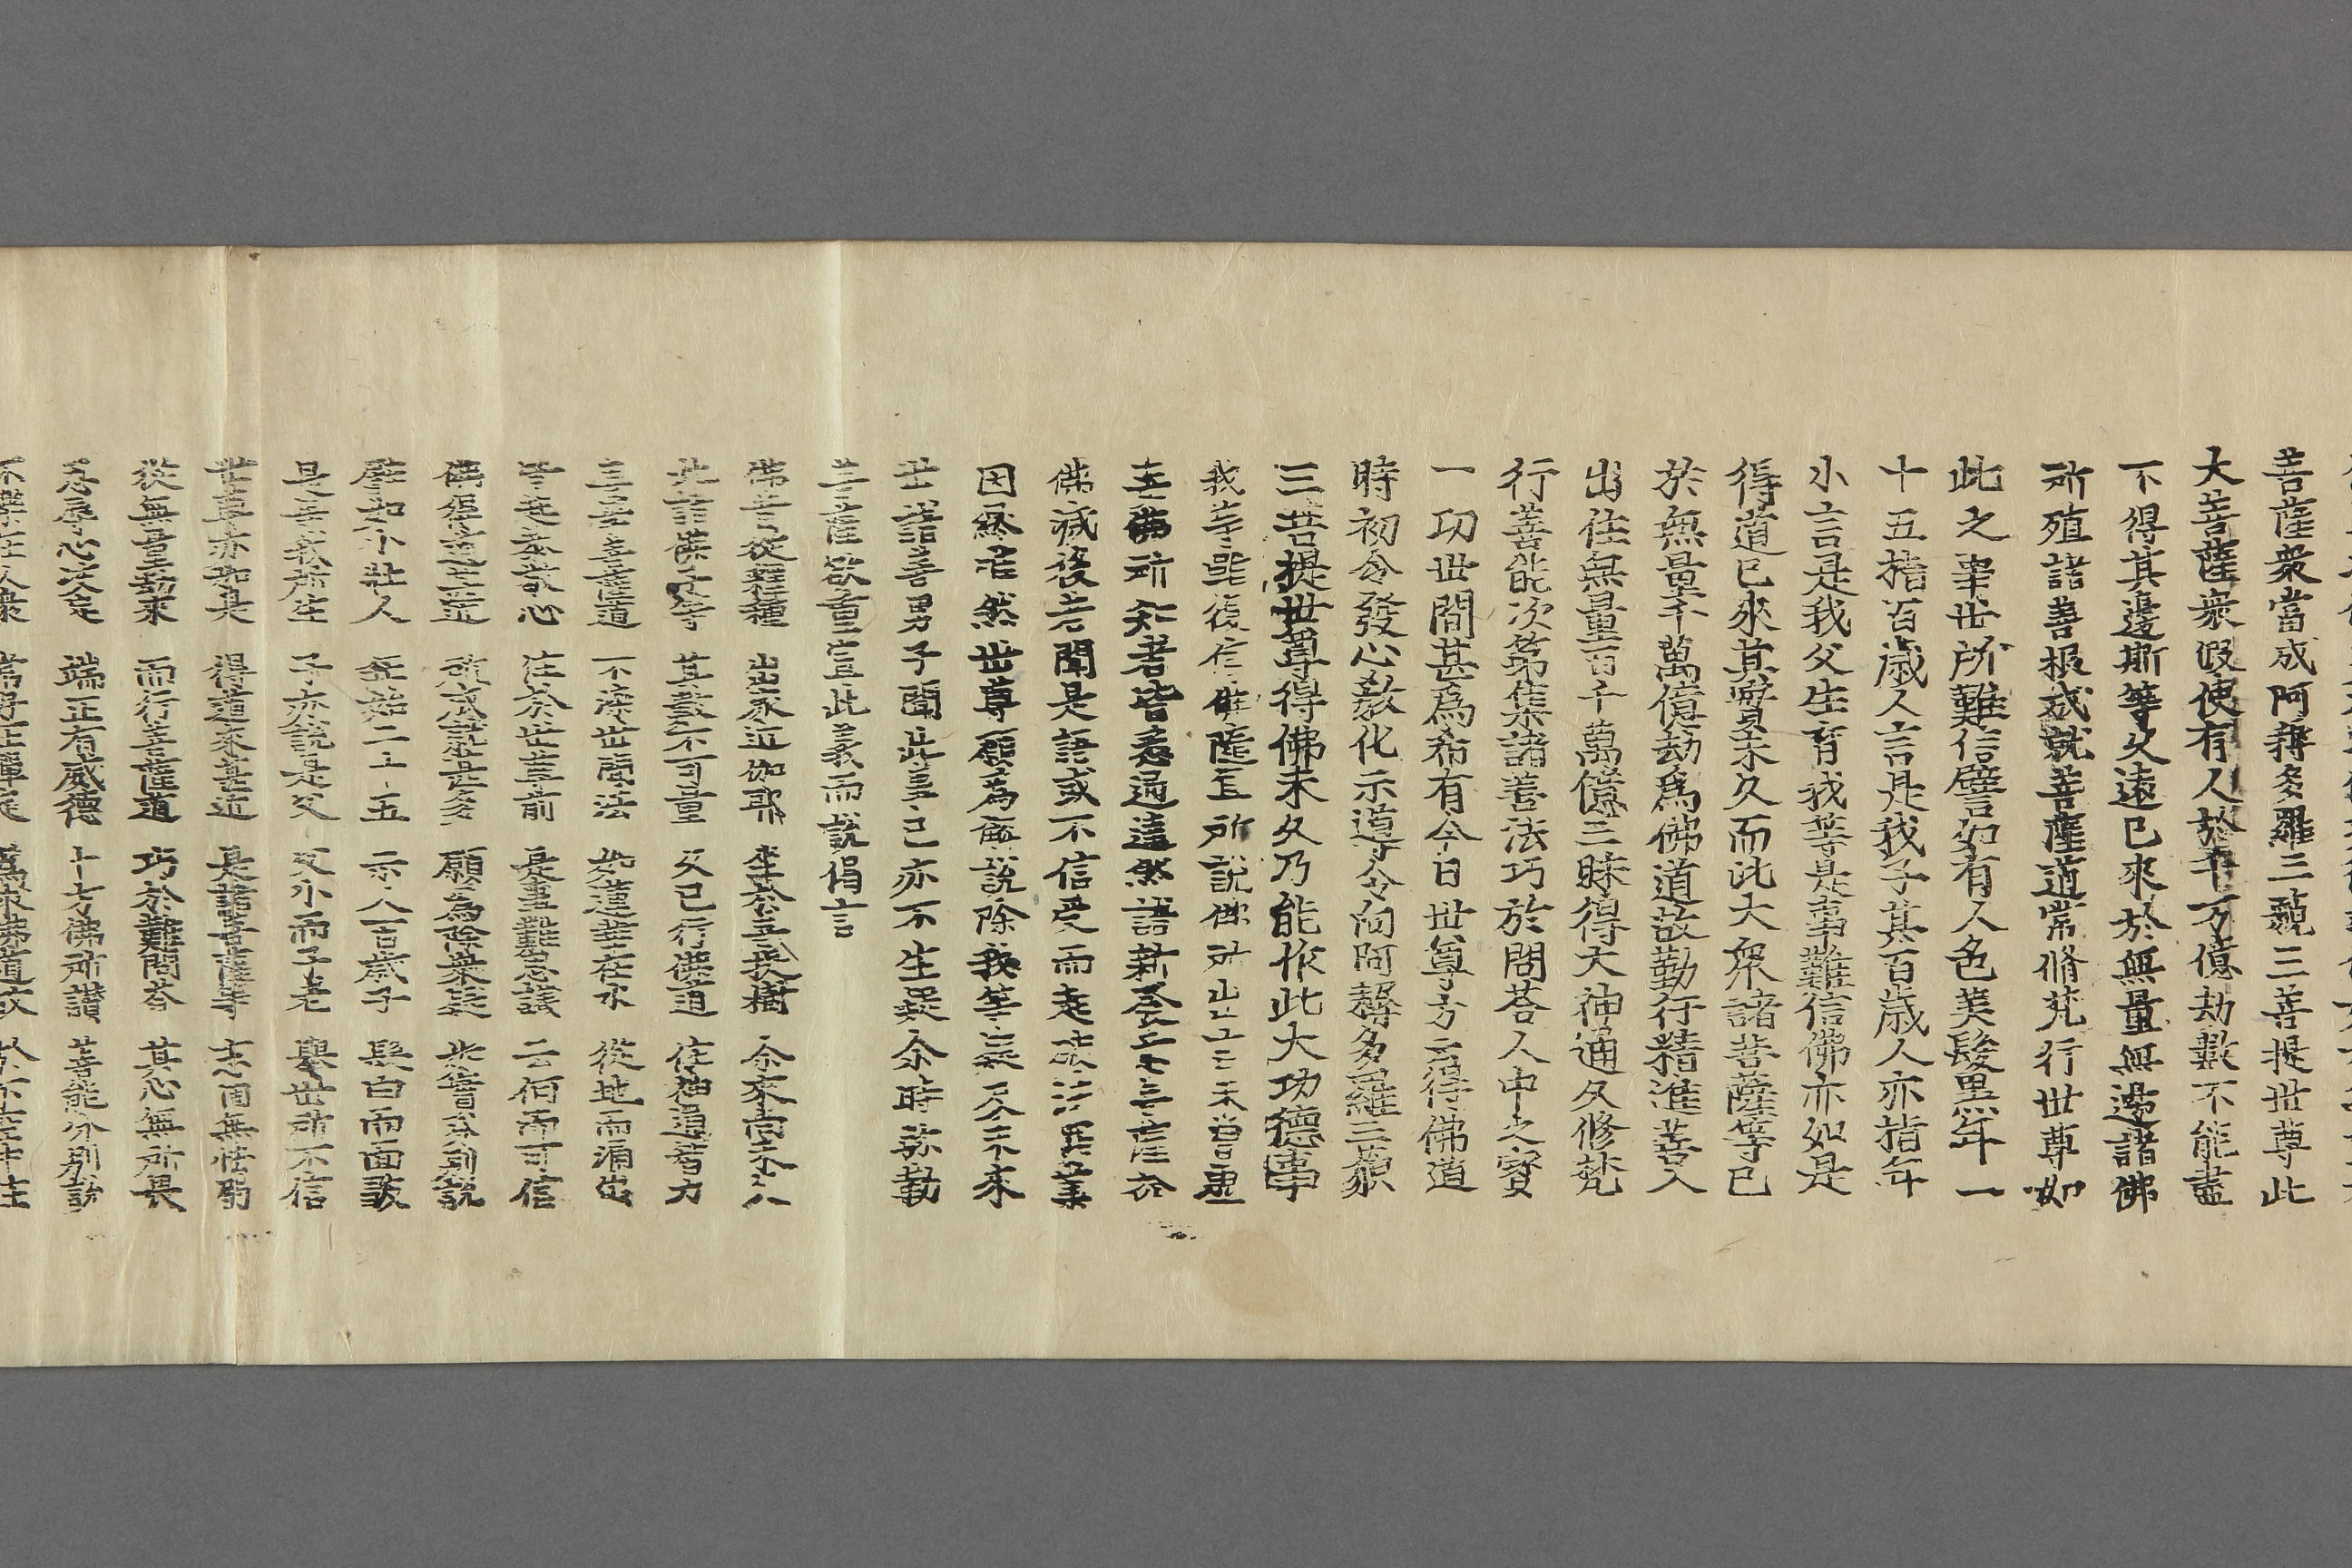 菩薩衆當成阿耨多羅三藐三菩提世尊此
大菩薩衆假使有人於千万億劫數不能盡
不得其邊斯等久遠已來於無量無邊諸佛
所殖諸善根成就菩薩道常脩梵行世尊如
此之事世所難信譬如有人色美髮黒年二
十五指百歳人言是我子其百歳人亦指年
小言是我父生育我等是事難信佛亦如是
得道已來其實未久而此大衆諸菩薩等已
於無量千萬億劫爲佛道故勤行精進善入
出住無量百千萬億三昧得大神通久修梵
行善能次第集諸善法巧於問荅人中之寳
一切世間甚爲希有今日世尊方云得佛道
時初令發心敎化示導令向阿耨多羅三藐
三菩提世尊得佛未久乃能作此大功德事
我等雖復信佛隨宜所說佛所出言未曽虚
妄佛所知者皆悉通達然諸新發意菩薩於
佛滅後若聞是語或不信受而起破法罪業
因縁唯然世尊願爲解說除我等疑及未來
世諸善男子聞此事已亦不生疑尒時弥勒
菩薩欲重宣此義而說偈言
佛昔從釋種 出家近伽耶 坐於菩提樹 尒來尚未久
此諸佛子等 其數不可量 久已行佛道 住神通智力
善學菩薩道 不染世間法 如蓮華在水 從地而涌出
皆起恭敬心 住於世尊前 是事難思議 云何而可信
佛得道甚近 所成就甚多 願爲除衆疑 如實分別說
譬如少壯人 年始二十五 示人百歳子 髮白而面皺
是等我所生 子亦說是父 父少而子老 擧世所不信
世尊亦如是 得道來甚近 是諸菩薩等 志固無怯弱
從無量劫來 而行菩薩道 巧於難問荅 其心無所畏
忍辱心決定 端正有威德 十方佛所讃 善能分別說
不樂在人衆 常好在禪定 爲求佛道故 於下空中住